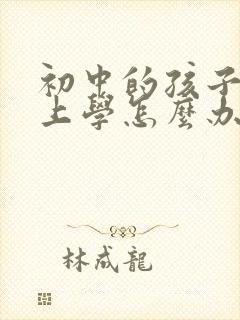 初中的孩子
上學怎麼办
林成龍